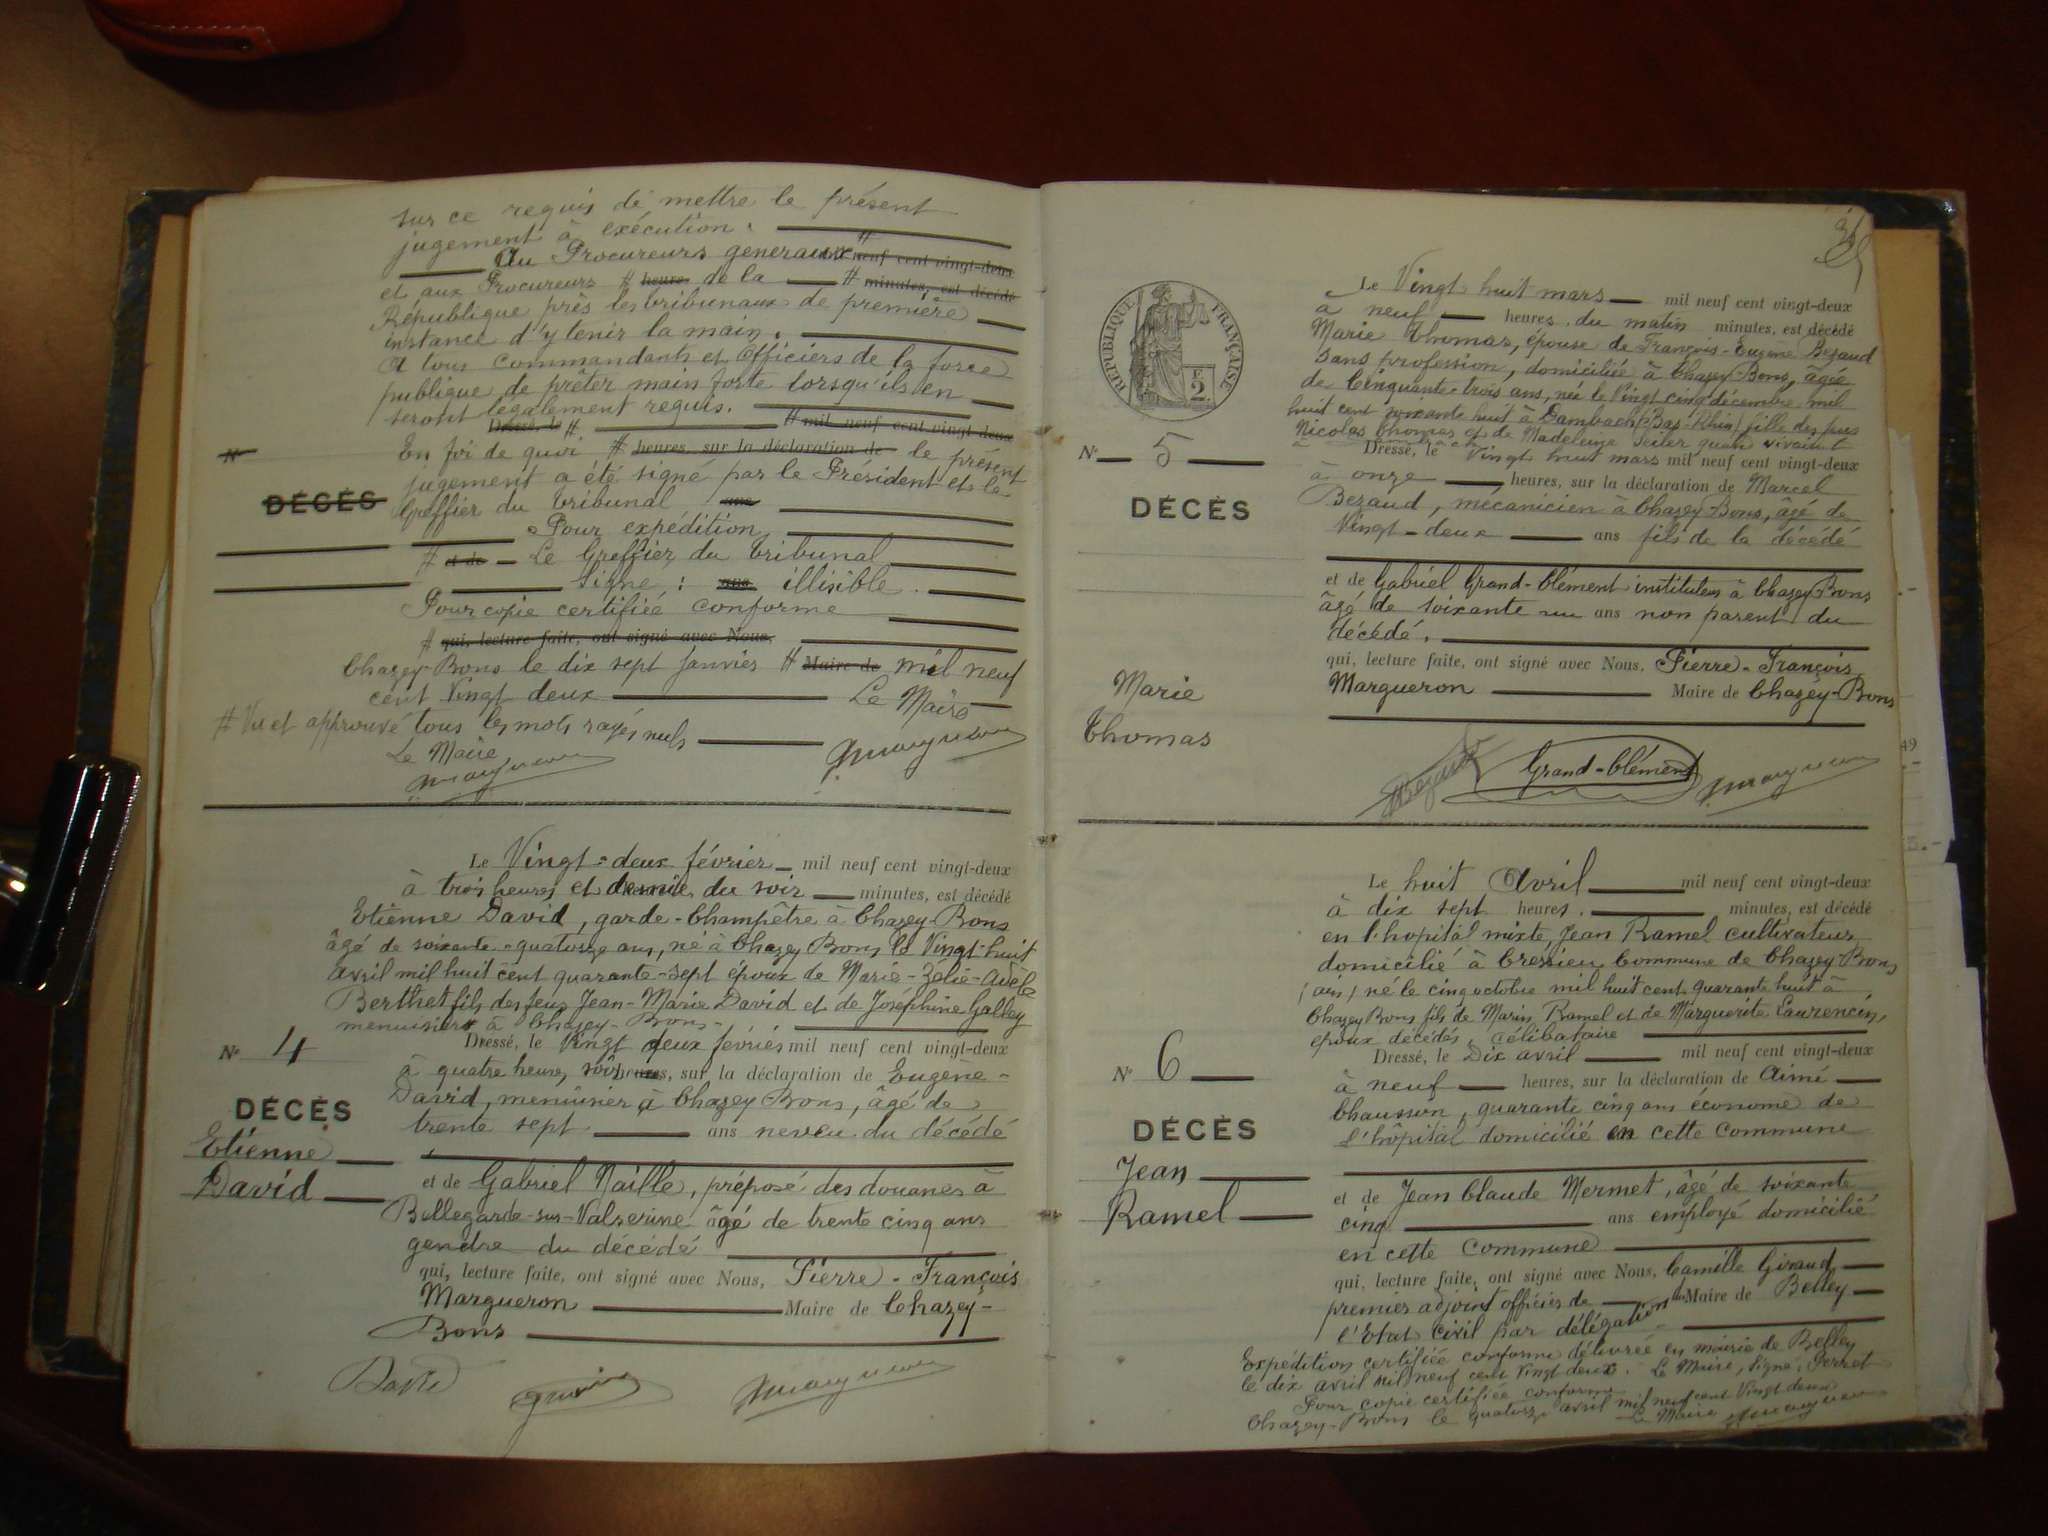 sur ce requis de mettre le présent
jugement à exécution :
Au Procureurs generaux # neuf cent vingt-deux
et aux Procureurs # heures de la # minutes, est décédé
République près les tribunaux de première
instance d'y tenir la main.
A tous commandants et Officiers de la force
publique de prêter main forte lorsqu'ils en
seront légalement requis.
Dressé, le # # mil neuf cent vingt-deux
En foi de quoi # heures, sur la déclaration de le présent
N°
jugement a été signé par le Président et le
DÉCÈS
Greffier du Tribunal ans
Pour expédition
# et de Le Greffier du Tribunal
Signé : ans illisible.
Pour copie certifiée conforme
# qui, lecture faite, ont signé avec Nous,
Chazey-Bons le dix sept Janvier # Maire de mil neuf
cent Vingt deux Le Maire
# Vu et approuvé tous les mots rayés nuls
Le Maire
Margueron
Margueron
Le Vingt-deux février mil neuf cent vingt-deux
à trois heures et demie du soir minutes, est décédé
Etienne David, garde-Champêtre à Chazey-Bons
âgé de soixante-quatorze ans, né à Chazey Bons le Vingt-huit
Avril mil huit cent quarante-sept époux de Marie-Zélie-Adèle
Berthet fils des feus Jean-Marie David et de Joséphine Galley
menuisiers à Chazey-Bons-
Dressé, le Vingt deux février mil neuf cent vingt-deux
N° 4
à quatre heures soir heures, sur la déclaration de Eugène-
David, menuisier à Chazey Bons, âgé de
DÉCÈS
trente sept ans neveu du décédé
Etienne
David
et de Gabriel Naille, préposé des douanes à
Bellegarde-sur-Valserine âgé de trente cinq ans
gendre du décédé
qui, lecture faite, ont signé avec Nous, Pierre-François
Margueron Maire de Chazey-
Bons
David
Margueron
Le Vingt huit mars mil neuf cent vingt-deux
à neuf heures du matin minutes, est décédé
Marie Thomas, épouse de François-Eugène Bezaud
sans profession, domiciliée à Chazey-Bons, âgée
de Cinquante-trois ans, née le Vingt cinq décembre mil
huit cent soixante huit à Dambach (Bas-Rhin) fille des feus
Nicolas Thomas et de Madeleine Seiler quand vivaient
à Dambach
RÉPUBLIQUE FRANÇAISE
F. 2.
Dressé, le Vingt huit mars mil neuf cent vingt-deux
N° 5
à onze heures, sur la déclaration de Marcel
Bezaud, mécanicien à Chazey-Bons, âgé de
DÉCÈS
Vingt-deux ans fils de la décédé
et de Gabriel Grand-Clément instituteur à Chazey Bons
âgé de soixante un ans non parent du
décédé.
qui, lecture faite, ont signé avec Nous, Pierre-François
Margueron Maire de Chazey-Bons
Marie
Thomas
Bezaud Grand-Clément Margueron
Le huit Avril mil neuf cent vingt-deux
à dix sept heures. minutes, est décédé
en l'hopital mixte, Jean Ramel cultivateur
domicilié à Cressieu Commune de Chazey-Bons
(ain) né le cinq octobre mil huit cent quarante huit à
Chazey Bons fils de Marin Ramel et de Marguerite Laurencin,
époux décédés, célibataire
Dressé, le Dix avril mil neuf cent vingt-deux
N° 6
à neuf heures, sur la déclaration de Aimé
Chausson, quarante cinq ans économe de
DÉCÈS
l'hôpital domicilié en cette commune
Jean
Ramel
et de Jean Claude Mermet, âgé de soixante
cinq ans employé domicilié
en cette commune
qui, lecture faite, ont signé avec Nous, Camille Giraud
premier adjoint officier de Maire de Belley
l'Etat civil par délégation
Expédition certifiée conforme délivrée en mairie de Belley
le dix avril mil neuf cent vingt deux. Le Maire, Signé: Perret
Pour copie certifiée conforme
Chazey-Bons le quatorze avril mil neuf cent Vingt deux
Le Maire Margueron